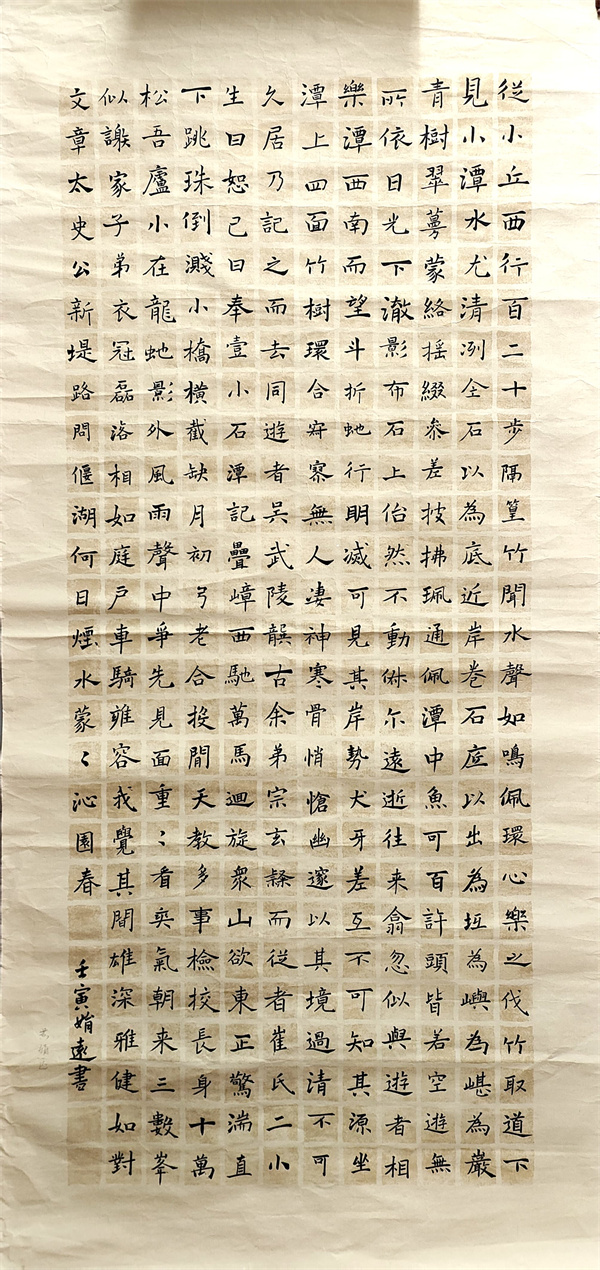 從小丘西行百二十步隔篁竹聞水聲如鳴佩環心樂之伐竹取道下
見小潭水尤清冽全石以為底近岸卷石底以出為坻為嶼為嵁為巖
青樹翠蔓蒙絡摇綴參差披拂珮通佩潭中魚可百許頭皆若空遊無
所依日光下澈影布石上佁然不動俶尔遠逝往来翕忽似與遊者相
樂潭西南而望斗折虵行明滅可見其岸勢犬牙差互不可知其源坐
潭上四面竹樹環合寂寥無人凄神寒骨悄愴幽邃以其境過清不可
久居乃記之而去同遊者吳武陵龔古余弟宗玄隸而從者崔氏二小
生曰恕己曰奉壹小石潭記疊嶂西馳萬馬迴旋衆山欲東正驚湍直
下跳珠倒濺小橋橫截缺月初弓老合投閒天教多事檢校長身十萬
松吾廬小在龍虵影外風雨聲中爭先見面重〻看奕氣朝来三數峯
似謝家子弟衣冠磊落相如庭戶車騎雍容我覺其間雄深雅健如對
文章太史公新堤路問偃湖何日煙水蒙〻沁園春
壬寅婧遠書